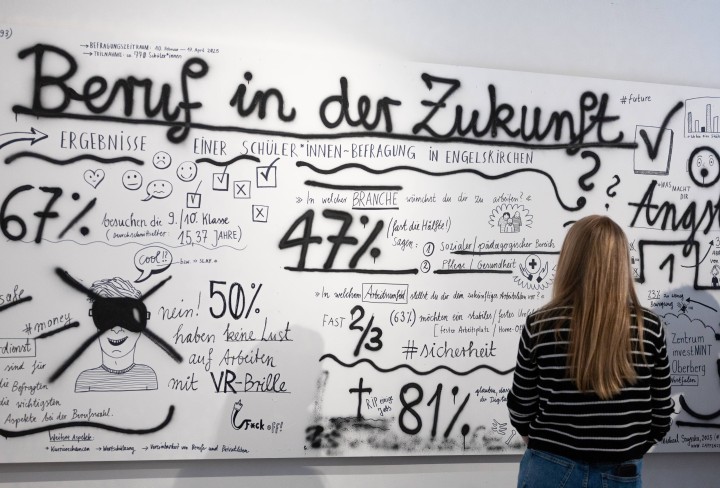 93)
→ BEFRAGUNGSZEITRAUM:
→ TEILNAHME:
Schüler*innen
Beruf in der Zukunft
#future
ERGEBNISSE EINER SCHÜLER*INNEN-BEFRAGUNG IN ENGELSKIRCHEN
67%
besuchen die 9./10. Klasse
(Durchschnittsalter: 15,37 JAHRE)
cool!!
#money
nein! 50%
haben keine Lust
auf Arbeiten
mit VR-Brille
dienst
sind für
die Befragten
die wichtigsten
Aspekte bei der Berufswahl.
Weitere Aspekte:
→ Karrierechancen → Wertschätzung → Vereinbarkeit von Beruf und Privatleben
F*ck off!
» In welcher BRANCHE wünschst du dir zu arbeiten? «
47%
(fast die Hälfte!)
sagen: ① Sozialer/pädagogischer Bereich
② Pflege / Gesundheit
» In welchem Arbeitsumfeld stellst du dir dein zukünftiges Arbeitsleben vor? «
FAST 2/3
(63%) möchten ein stabiles/festes
#sicherheit
RIP
jobs
81%
glauben,
der
WAS
MACHT DIR
Angs
1
23%
Zentrum
investMINT
Oberberg